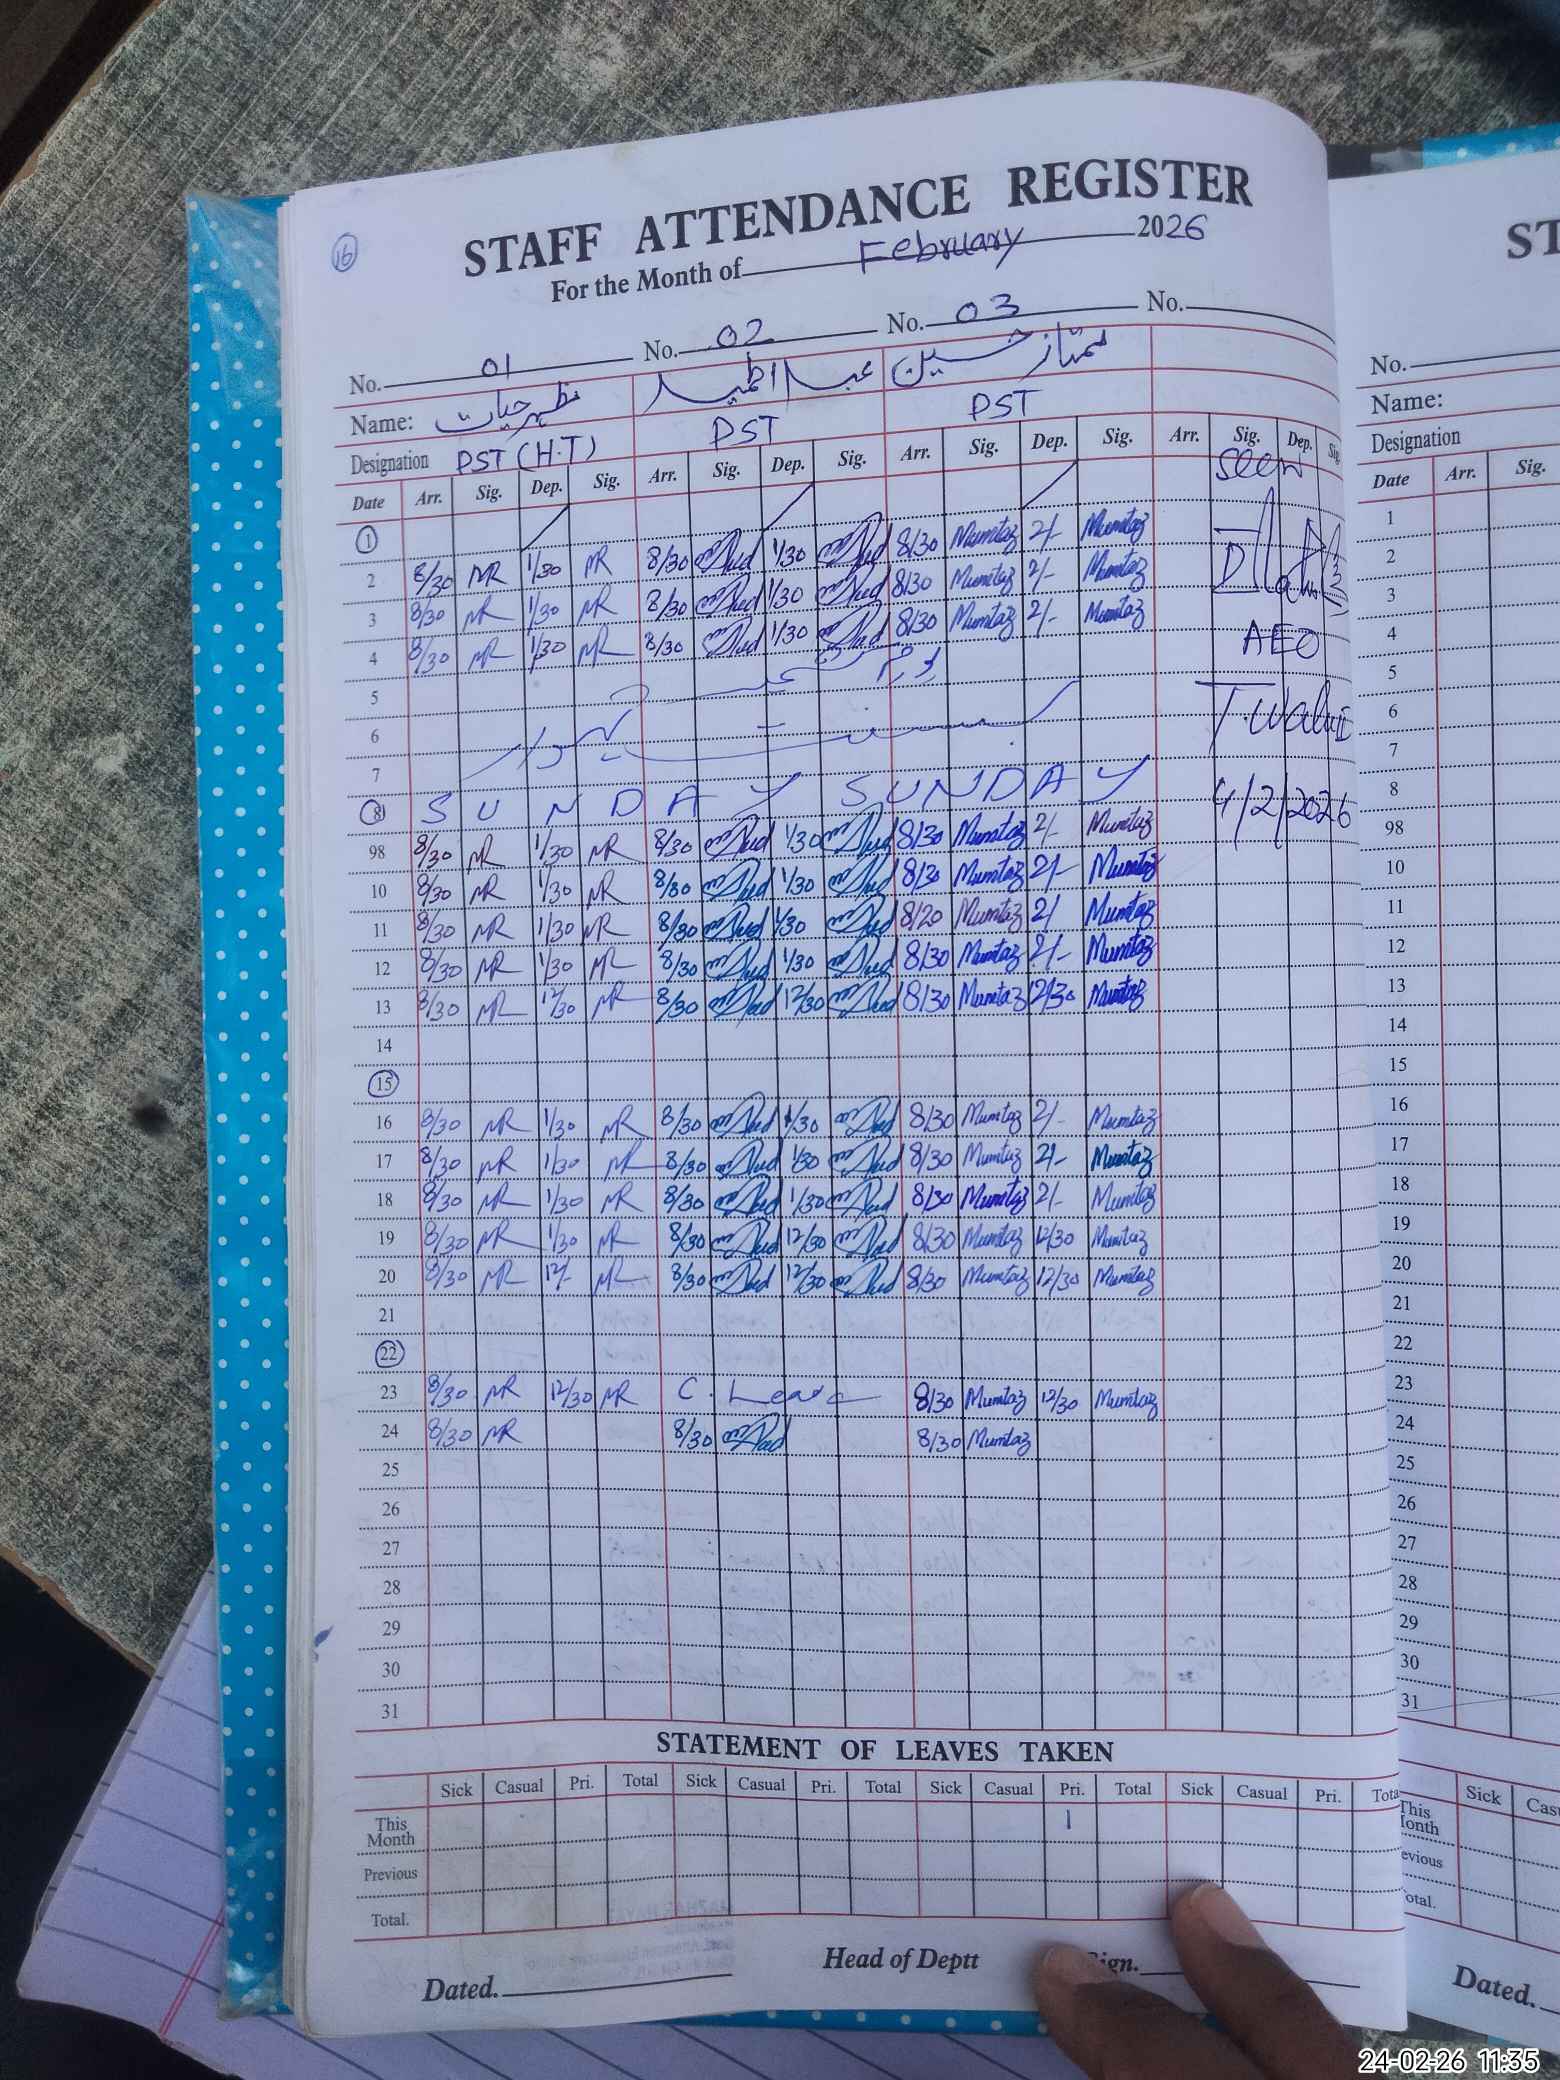 16
STAFF ATTENDANCE REGISTER
For the Month of February 2026
No. 01 No. 02 No. 03 No.
Name: مظہر حیات عبد الحمید ممتاز حسین
Designation PST (H.T) PST PST
Date Arr. Sig. Dep. Sig. Arr. Sig. Dep. Sig. Arr. Sig. Dep. Sig. Arr. Sig. Dep. Sig.
Seen
1
2 8/30 MR 1/30 MR 8/30 1/30 8/30 Mumtaz 2/- Mumtaz
3 8/30 MR 1/30 MR 8/30 1/30 8/30 Mumtaz 2/- Mumtaz
4 8/30 MR 1/30 MR 8/30 1/30 8/30 Mumtaz 2/- Mumtaz
AEO
5
6
7
8 SUNDAY SUNDAY
4/2/2026
98 8/30 MR 1/30 MR 8/30 1/30 8/30 Mumtaz 2/- Mumtaz
10 8/30 MR 1/30 MR 8/30 1/30 8/30 Mumtaz 2/- Mumtaz
11 8/30 MR 1/30 MR 8/30 1/30 8/20 Mumtaz 2/- Mumtaz
12 8/30 MR 1/30 MR 8/30 1/30 8/30 Mumtaz 2/- Mumtaz
13 8/30 MR 12/30 MR 8/30 12/30 8/30 Mumtaz 12/30 Mumtaz
14
15
16 8/30 MR 1/30 MR 8/30 1/30 8/30 Mumtaz 2/- Mumtaz
17 8/30 MR 1/30 MR 8/30 1/30 8/30 Mumtaz 2/- Mumtaz
18 8/30 MR 1/30 MR 8/30 1/30 8/30 Mumtaz 2/- Mumtaz
19 8/30 MR 1/30 MR 8/30 12/30 8/30 Mumtaz 12/30 Mumtaz
20 8/30 MR 12/- MR 8/30 12/30 8/30 Mumtaz 12/30 Mumtaz
21
22
23 8/30 MR 12/30 MR C. Leave 8/30 Mumtaz 12/30 Mumtaz
24 8/30 MR 8/30 8/30 Mumtaz
25
26
27
28
29
30
31
STATEMENT OF LEAVES TAKEN
Sick Casual Pri. Total Sick Casual Pri. Total Sick Casual Pri. Total Sick Casual Pri.
This Month 1
Previous
Total.
Dated. Head of Deptt Sign.
ST
No.
Name:
Designation
Date Arr. Sig.
1
2
3
4
5
6
7
8
98
10
11
12
13
14
15
16
17
18
19
20
21
22
23
24
25
26
27
28
29
30
31
Sick
Dated.
24-02-26 11:35